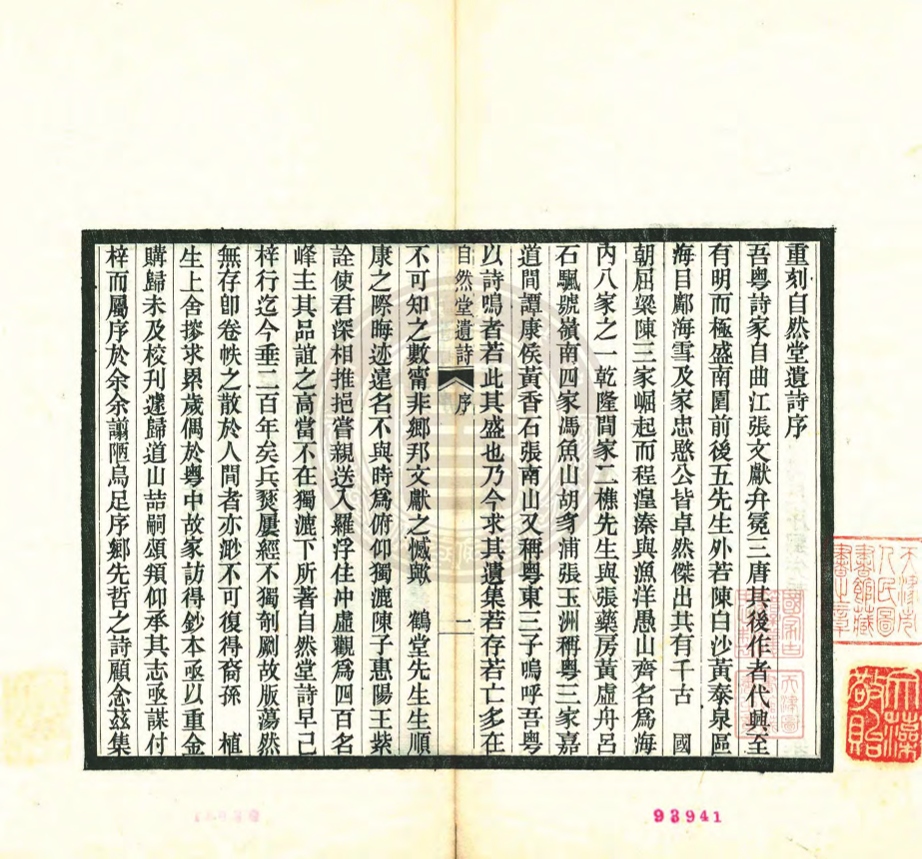 重刻自然堂遺詩序
吾粵詩家自曲江張文獻弁冕三唐其後作者代興至
有明而極盛南園前後五先生外若陳白沙黃泰泉區
海目鄺海雪及家忠愍公皆卓然傑出共有千古 國
朝屈梁陳三家崛起而程湟溱與漁洋愚山齊名爲海
內八家之一乾隆間家二樵先生與張藥房黃虛舟呂
石驅號嶺南四家馮魚山胡豸浦張玉洲稱粵三家嘉
道間譚康侯黃香石張南山又稱粵東三子嗚呼吾粵
以詩鳴者若此其盛也乃今求其遺集若存若亡多在
自然堂遺詩 序 二
不可知之數甯非鄉邦文獻之憾歟 鶴堂先生生順
康之際晦迹遠名不與時爲俯仰獨漉陳子惠陽王紫
詮使君深相推挹嘗親送入羅浮住冲虛觀爲四百名
峰主其品誼之高當不在獨漉下所著自然堂詩早已
梓行迄今垂二百年矣兵燹屢經不獨剞劂故版蕩然
無存卽卷帙之散於人間者亦渺不可復得裔孫 植
生上舍摉求累歲偶於粵中故家訪得鈔本亟以重金
購歸未及校刊遽歸道山喆嗣頌頖仰承其志亟謀付
梓而屬序於余余譾陋烏足序鄉先哲之詩顧念茲集
天津市
人民圖
書館藏
書之章
93941